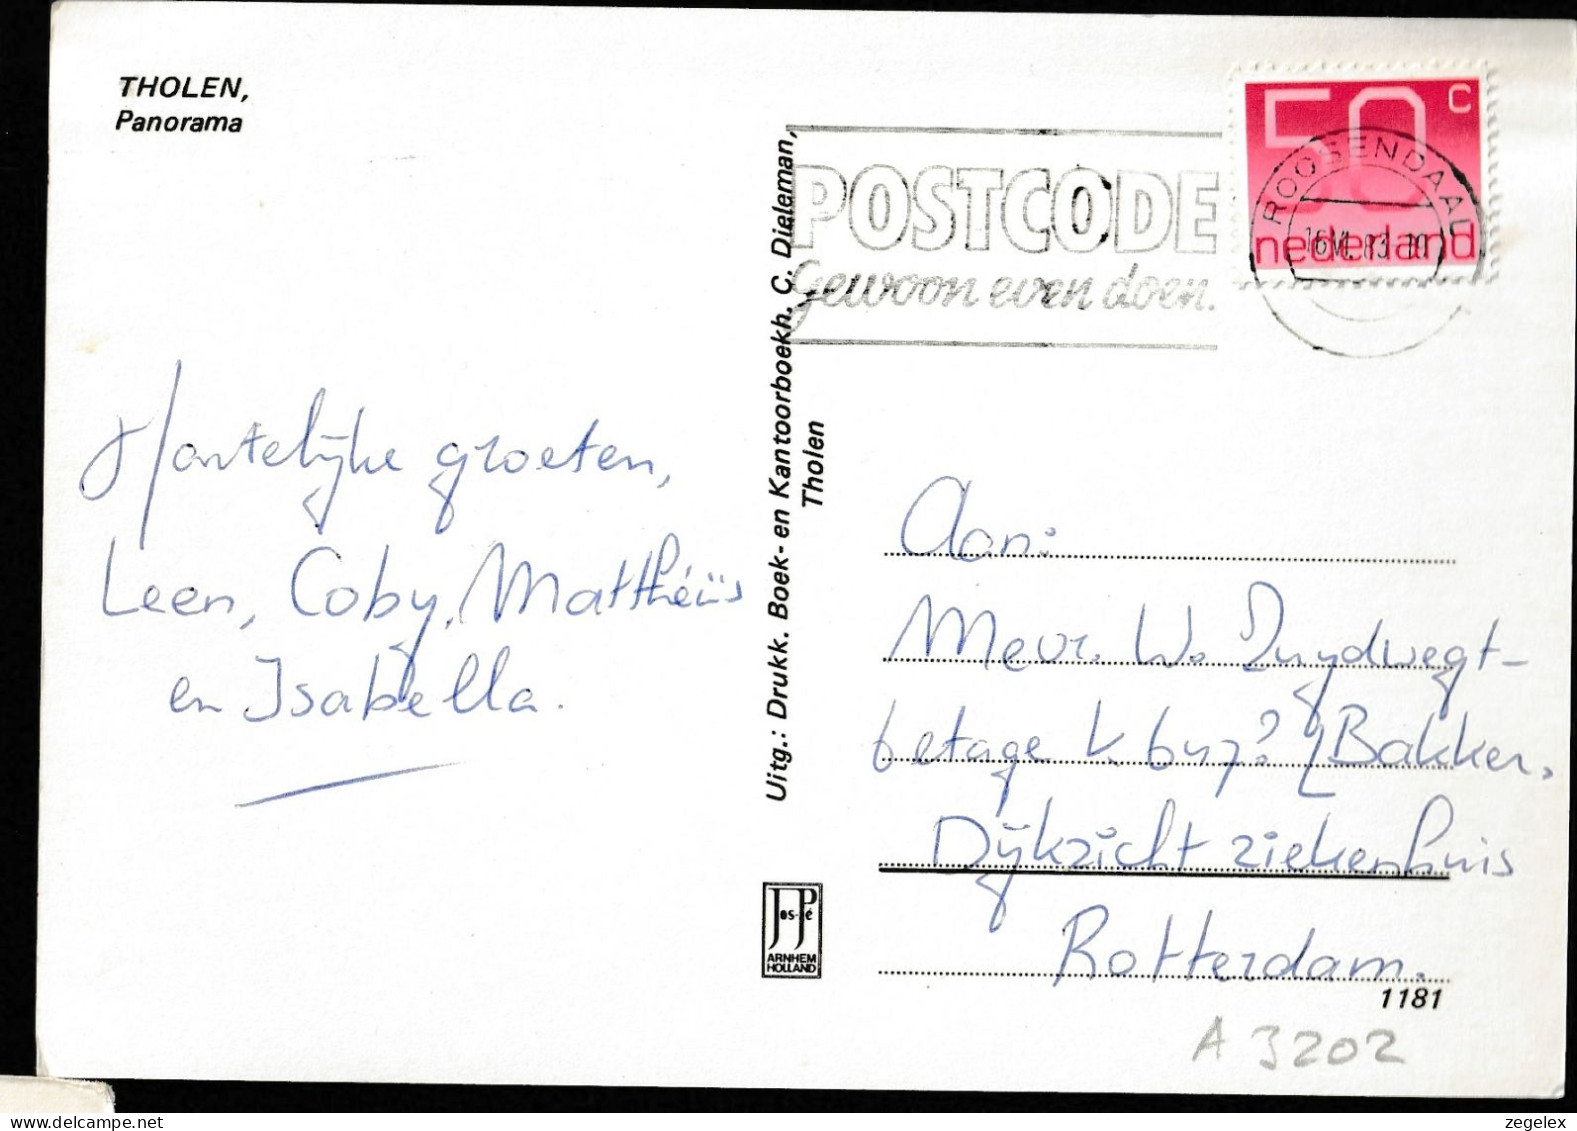 THOLEN,
Panorama
Hartelijke groeten,
Leen, Coby, Matthéüs
en Isabella.
Uitg.: Drukk. Boek- en Kantoorboekh. C. Dieleman,
Tholen
Jos-Pé
ARNHEM
HOLLAND
POSTCODE
Gewoon even doen.
50 c
nederland
ROOSENDAAL
16.VI.83.10
Aan:
Mevr. W. Zuydwegt-
betage k 647? Bakker.
Dijkzicht ziekenhuis
Rotterdam.
1181
A 3202
zegelex